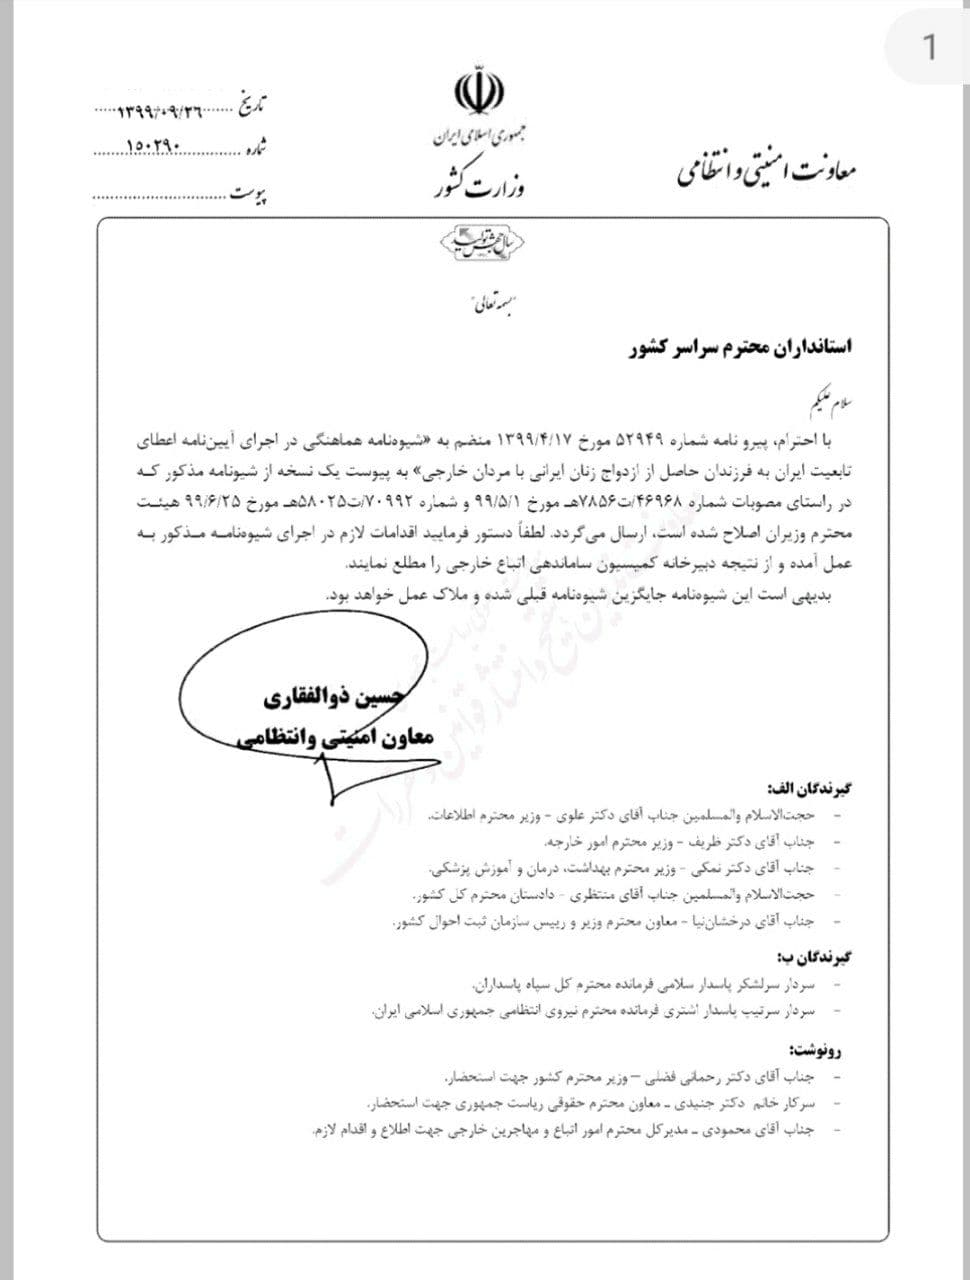 1
جمهوری اسلامی ایران
وزارت کشور
معاونت امنیتی و انتظامی
تاریخ ۱۳۹۹/۰۹/۲۶
شماره ۱۵۰۲۹۰
پیوست
سال جهش تولید
"بسمه تعالی"
استانداران محترم سراسر کشور
سلام علیکم
با احترام، پیرو نامه شماره ۵۲۹۴۹ مورخ ۱۳۹۹/۴/۱۷ منضم به «شیوه‌نامه هماهنگی در اجرای آیین‌نامه اعطای
تابعیت ایران به فرزندان حاصل از ازدواج زنان ایرانی با مردان خارجی» به پیوست یک نسخه از شیونامه مذکور که
در راستای مصوبات شماره ۴۶۹۶۸/ت۷۸۵۶هـ مورخ ۹۹/۵/۱ و شماره ۷۰۹۹۲/ت۵۸۰۲۵هـ مورخ ۹۹/۶/۲۵ هیئت
محترم وزیران اصلاح شده است، ارسال می‌گردد. لطفاً دستور فرمایید اقدامات لازم در اجرای شیوه‌نامه مذکور به
عمل آمده و از نتیجه دبیرخانه کمیسیون ساماندهی اتباع خارجی را مطلع نمایند.
بدیهی است این شیوه‌نامه جایگزین شیوه‌نامه قبلی شده و ملاک عمل خواهد بود.
حسین ذوالفقاری
معاون امنیتی وانتظامی
گیرندگان الف:
- حجت‌الاسلام والمسلمین جناب آقای دکتر علوی - وزیر محترم اطلاعات.
- جناب آقای دکتر ظریف - وزیر محترم امور خارجه.
- جناب آقای دکتر نمکی - وزیر محترم بهداشت، درمان و آموزش پزشکی.
- حجت‌الاسلام والمسلمین جناب آقای منتظری - دادستان محترم کل کشور.
- جناب آقای درخشان‌نیا - معاون محترم وزیر و رییس سازمان ثبت احوال کشور.
گیرندگان ب:
- سردار سرلشکر پاسدار سلامی فرمانده محترم کل سپاه پاسداران.
- سردار سرتیپ پاسدار اشتری فرمانده محترم نیروی انتظامی جمهوری اسلامی ایران.
رونوشت:
- جناب آقای دکتر رحمانی فضلی – وزیر محترم کشور جهت استحضار.
- سرکار خانم دکتر جنیدی ـ معاون محترم حقوقی ریاست جمهوری جهت استحضار.
- جناب آقای محمودی ـ مدیرکل محترم امور اتباع و مهاجرین خارجی جهت اطلاع و اقدام لازم.